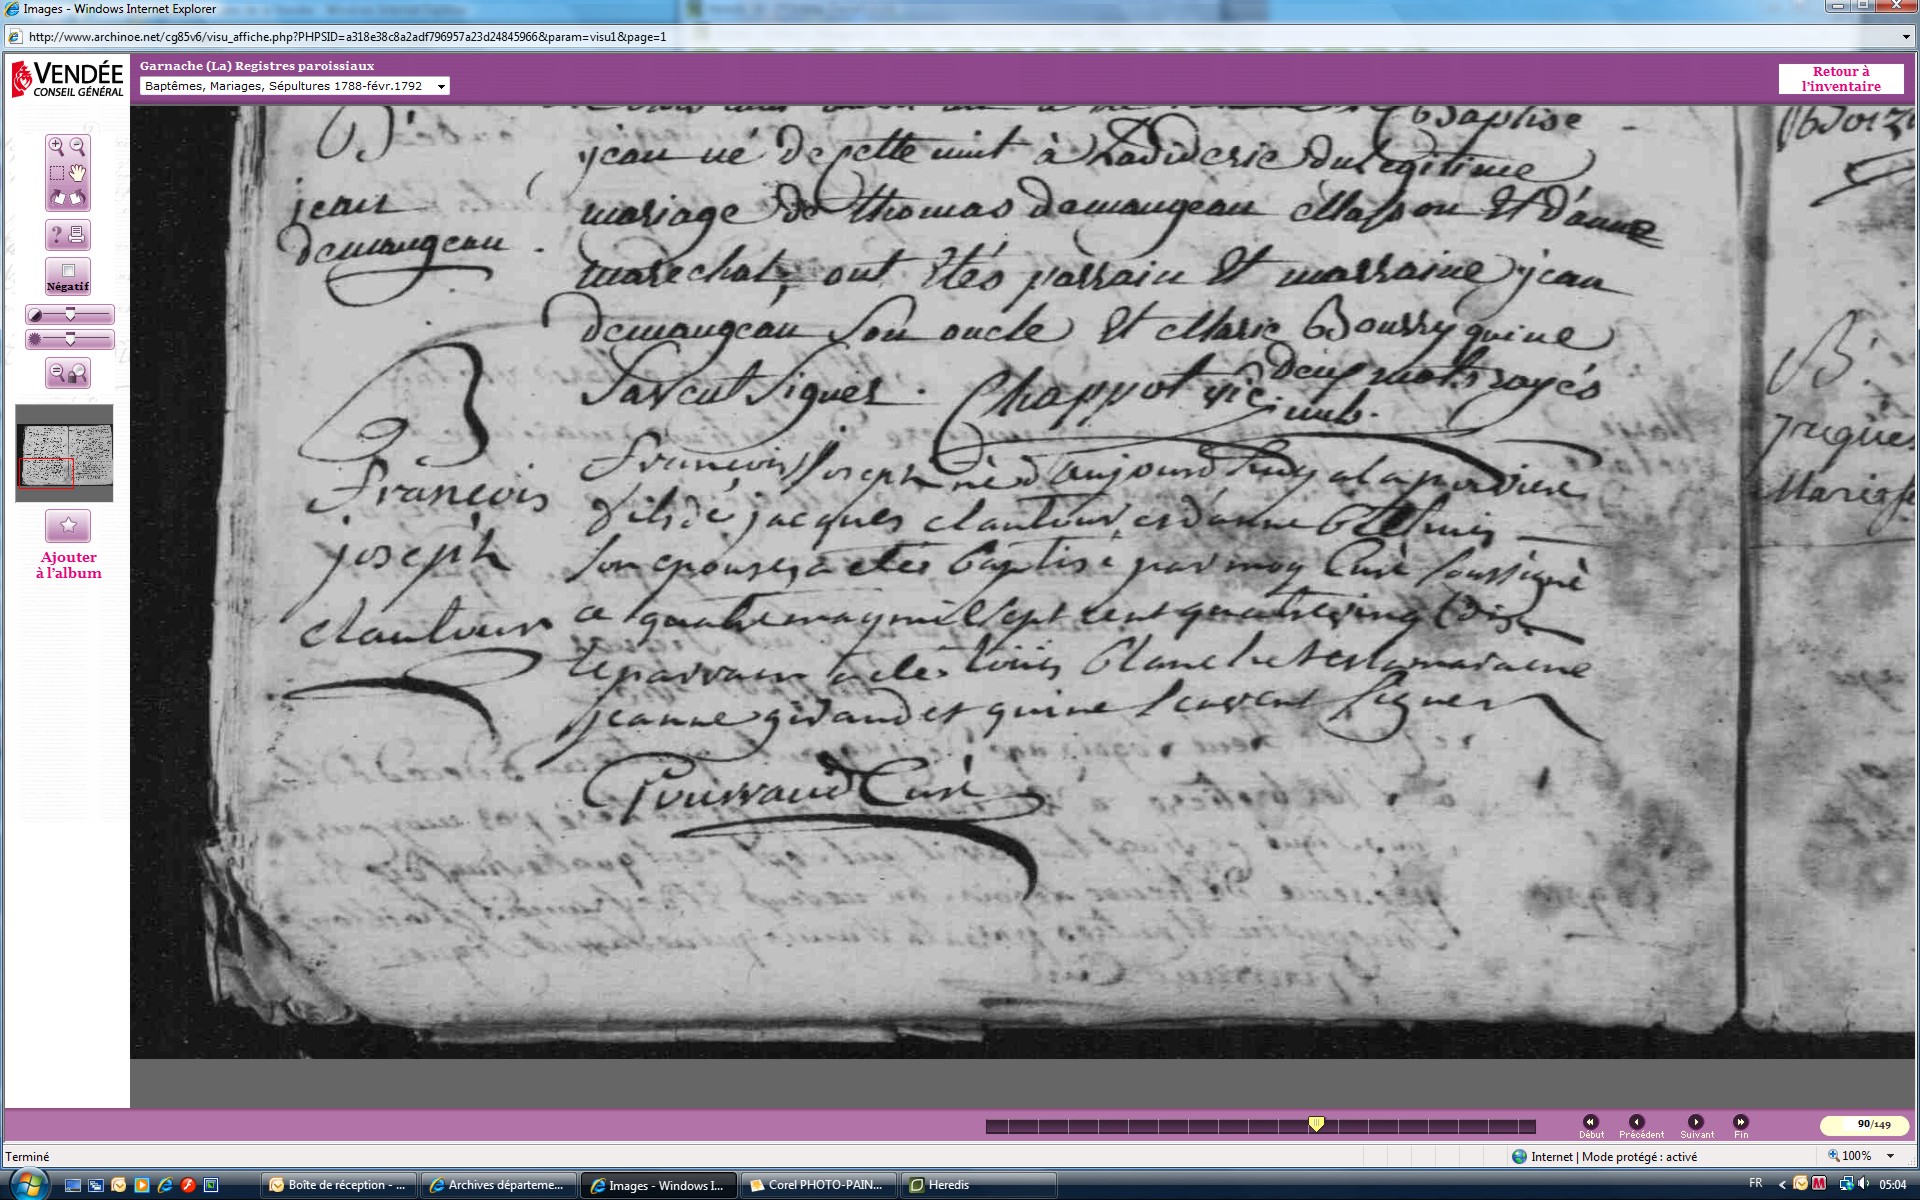 Images - Windows Internet Explorer
http://www.archinoe.net/cg85v6/visu_affiche.php?PHPSID=a318e38c8a2adf796957a23d24845966&param=visu1&page=1
VENDÉE
CONSEIL GÉNÉRAL
Garnache (La) Registres paroissiaux
Baptêmes, Mariages, Sépultures 1788-févr.1792
Retour à
l'inventaire
Négatif
Ajouter
à l'album
Baptise
B
jean né de cette nuit à du legitime
jean
mariage de thomas demaugeau Masson Et d'anne
demaugeau .
marechal, ont Etés parrain Et marraine jean
demaugeau son oncle Et Marie Boursy qui ne
deux mots rayés
savent signer . Chappot vic.
nuls.
B
françois joseph né d'aujourd huy a la
françois
fils de jacques clautour et d'anne
joseph
son epouse, a etés baptisé par moy Curé soussigné
clautour
ce quatre may mil sept cent quatre ving dix
le parrain a etés louis blanchet et la maraine
jeanne giraud et qui ne scavent signer
Curé
B.
90/149
Début
Précédent
Suivant
Fin
Terminé
Internet | Mode protégé : activé
100%
Boîte de réception - ...
Archives départeme...
Images - Windows I...
Corel PHOTO-PAIN...
Heredis
FR
05:04